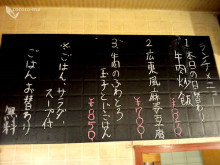 ランチメニュー
1.本日の日替り
牛肉炒飯
2.広東風麻婆豆腐
¥850
3.わのふわとろ
玉子とじごはん
¥850
※ごはん、サラダ、
スープ付
ごはんお替わり
無料